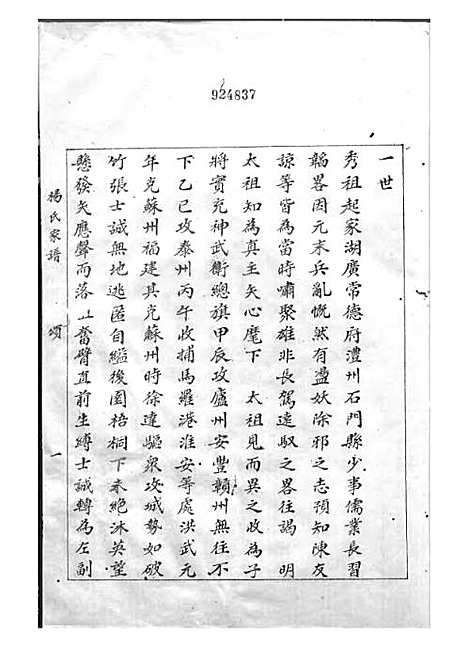 924837
一世
秀祖起家湖廣常德府澧州石門縣少事儒業長習
韜畧因元末兵亂慨然有盪妖除邪之志預知陳友
諒等皆為當時嘯聚雄非長駕遠馭之畧往謁　明
太祖知為真主矢心麾下　太祖見而異之收為子
將實充神武衛總旗甲辰攻廬州安豐贛州無往不
下乙巳攻泰州丙午收捕馬羅港淮安等處洪武元
年克蘇州福建其克蘇州時徐達驅衆攻城勢如破
竹張士誠無地逃匿自縊後園梧桐下未絕沐英望
懸發矢應聲而落　奮臂直前生縛士誠轉為左副
楊氏家譜　頌　一